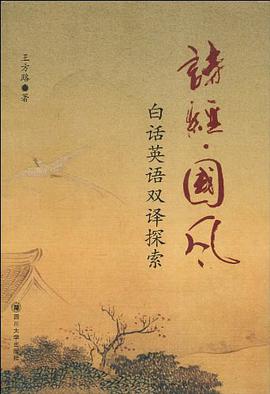 詩經·國风
白话英语双译探索
王方路 著
四川大学出版社